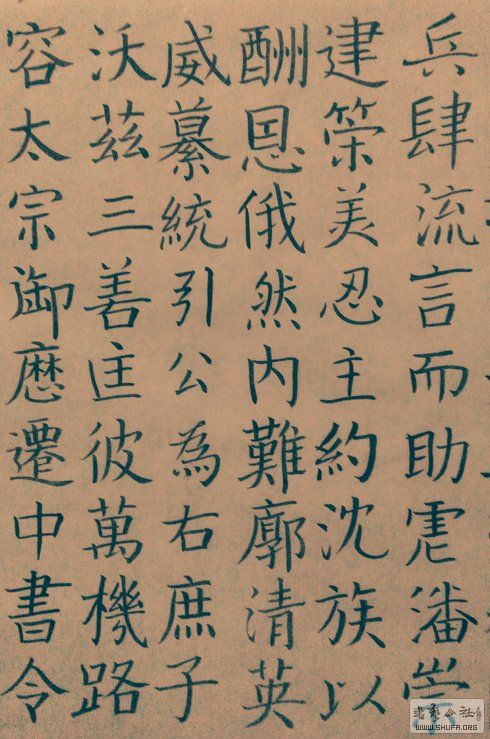 兵肆流言而助虐潘崇
建策美忍主約沈族以
酬恩俄然内難廓清英
威纂統引公為右庶子
沃茲三善匡彼萬機路
容太宗御曆遷中書令
WWW.SHUFA.ORG